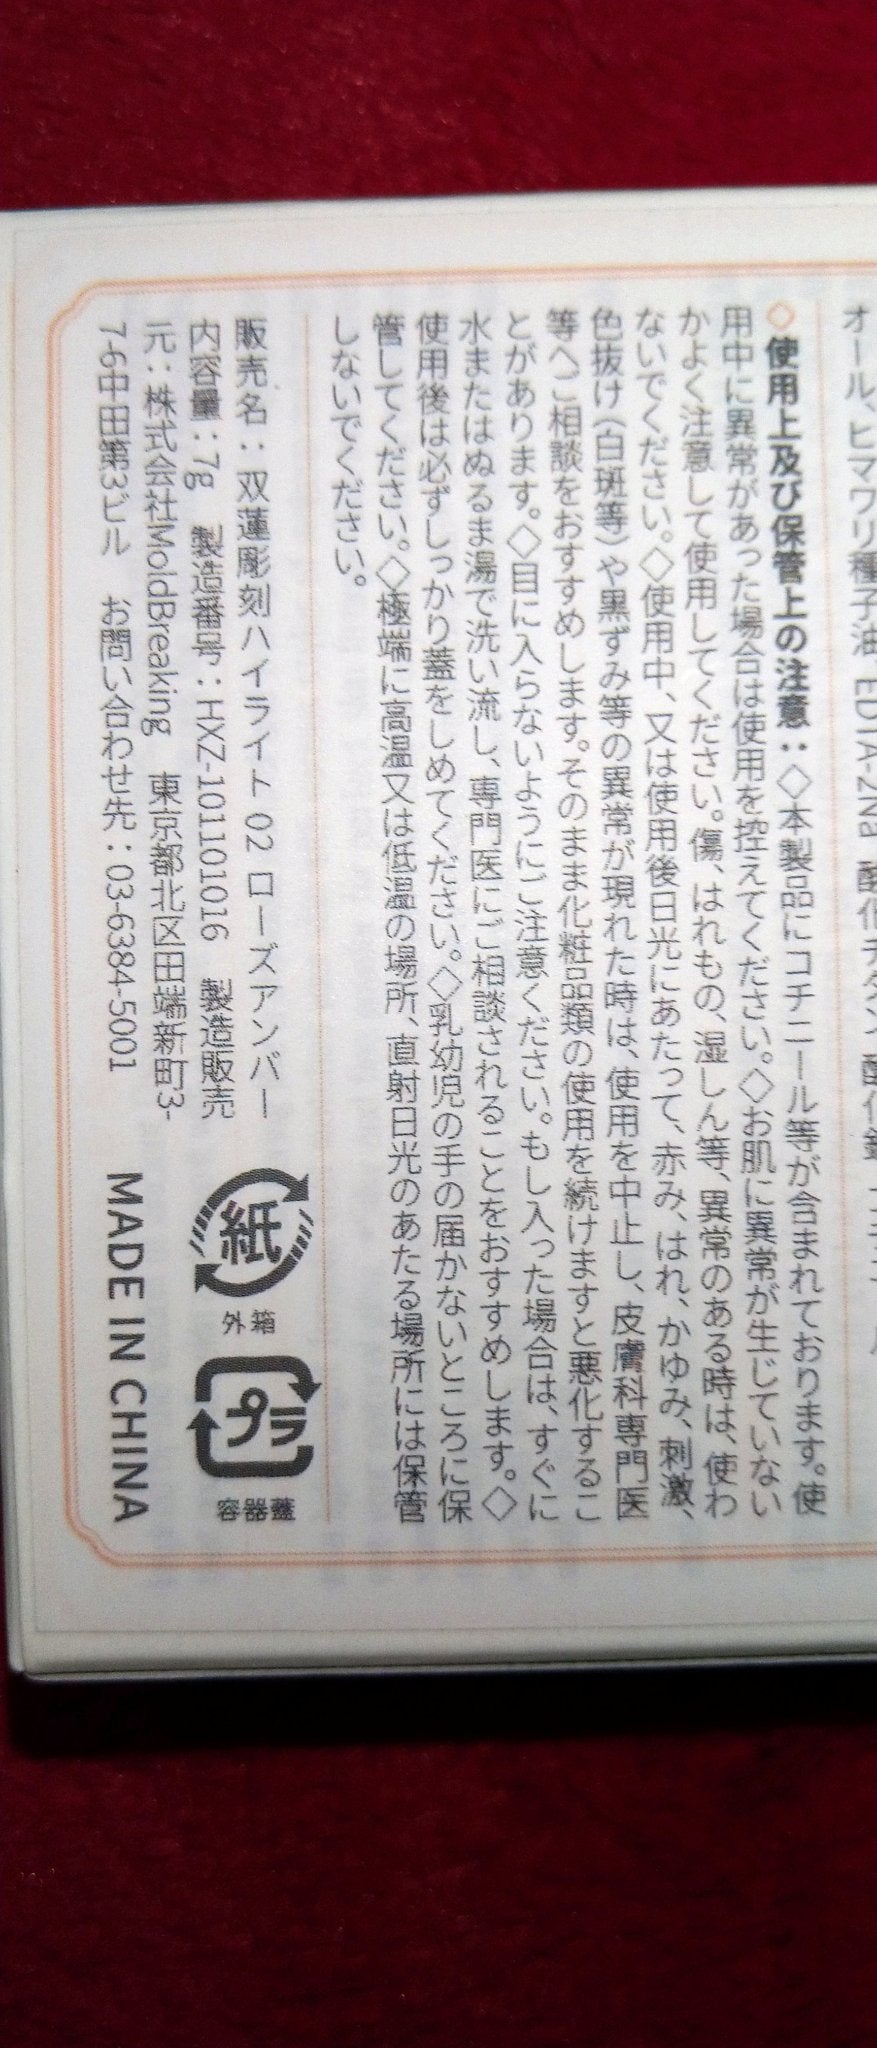 オール、ヒマワリ種子油、EDTA-2Na、酸化チタン、酸化鉄
◇使用上及び保管上の注意：◇本製品にコチニール等が含まれております。使
用中に異常があった場合は使用を控えてください。◇お肌に異常が生じていない
かよく注意して使用してください。傷、はれもの、湿しん等、異常のある時は、使わ
ないでください。◇使用中、又は使用後日光にあたって、赤み、はれ、かゆみ、刺激、
色抜け（白斑等）や黒ずみ等の異常が現れた時は、使用を中止し、皮膚科専門医
等へご相談をおすすめします。そのまま化粧品類の使用を続けますと悪化するこ
とがあります。◇目に入らないようにご注意ください。もし入った場合は、すぐに
水またはぬるま湯で洗い流し、専門医にご相談されることをおすすめします。◇
使用後は必ずしっかり蓋をしめてください。◇乳幼児の手の届かないところに保
管してください。◇極端に高温又は低温の場所、直射日光のあたる場所には保管
しないでください。
販売名：双蓮彫刻ハイライト 02 ローズアンバー
内容量：7g 製造番号：HXZ-101101016 製造販売
元：株式会社MoldBreaking 東京都北区田端新町3-
7-6中田第3ビル お問い合わせ先：03-6384-5001
紙
外箱
プラ
容器蓋
MADE IN CHINA